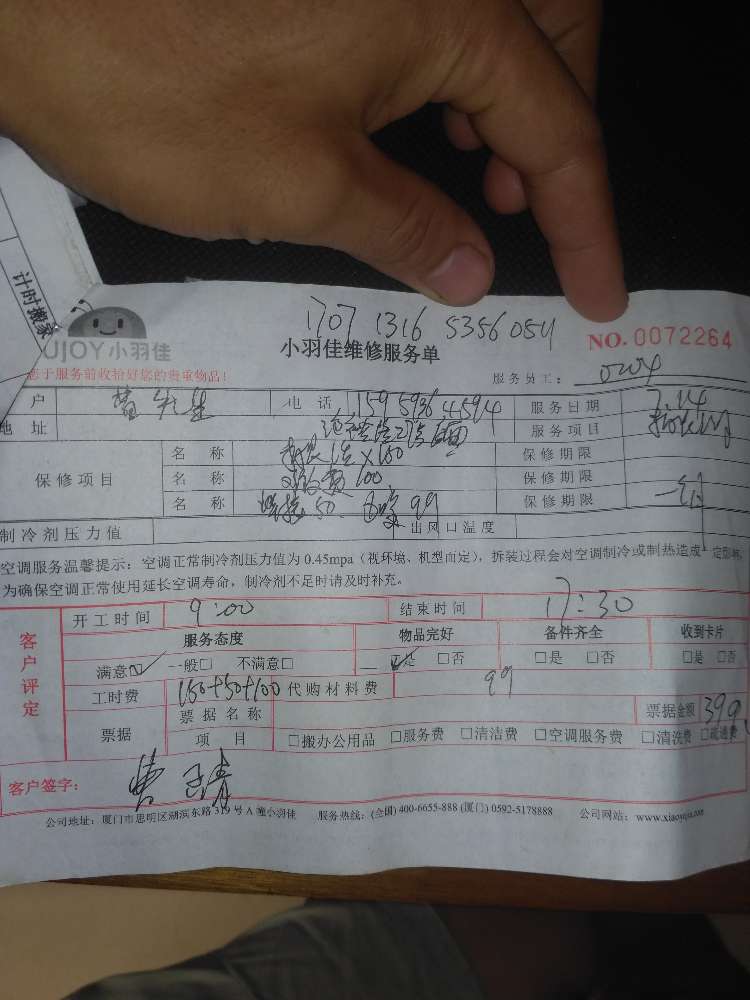 计时搬家
1707 1316 5356054
UJOY小羽佳
小羽佳维修服务单
NO.0072264
您于服务前收拾好您的贵重物品!
服务员工:
户 先生 电话 159 5936 4594 服务日期 7.14
地址 服务项目
保修项目 名称 ×150 保修期限
名称 100 保修期限
名称 焊接50 99 保修期限
制冷剂压力值 出风口温度
空调服务温馨提示:空调正常制冷剂压力值为 0.45mpa(视环境、机型而定),拆装过程会对空调制冷或制热造成一定影响,
为确保空调正常使用延长空调寿命,制冷剂不足时请及时补充。
客户评定
开工时间 9:00 结束时间 17:30
服务态度 物品完好 备件齐全 收到卡片
满意☑ 一般□ 不满意□ ☑是 □否 □是 □否 □是 □否
工时费 150+50+100 代购材料费 99
票据 票据名称 票据金额 399
项目 □搬办公用品 □服务费 □清洁费 □空调服务费 □清洗费 □疏通费
客户签字:
公司地址:厦门市思明区湖滨东路 319 号 A 幢小羽佳 服务热线:(全国) 400-6655-888 (厦门) 0592-5178888 公司网站:www.xiaoyujia.com